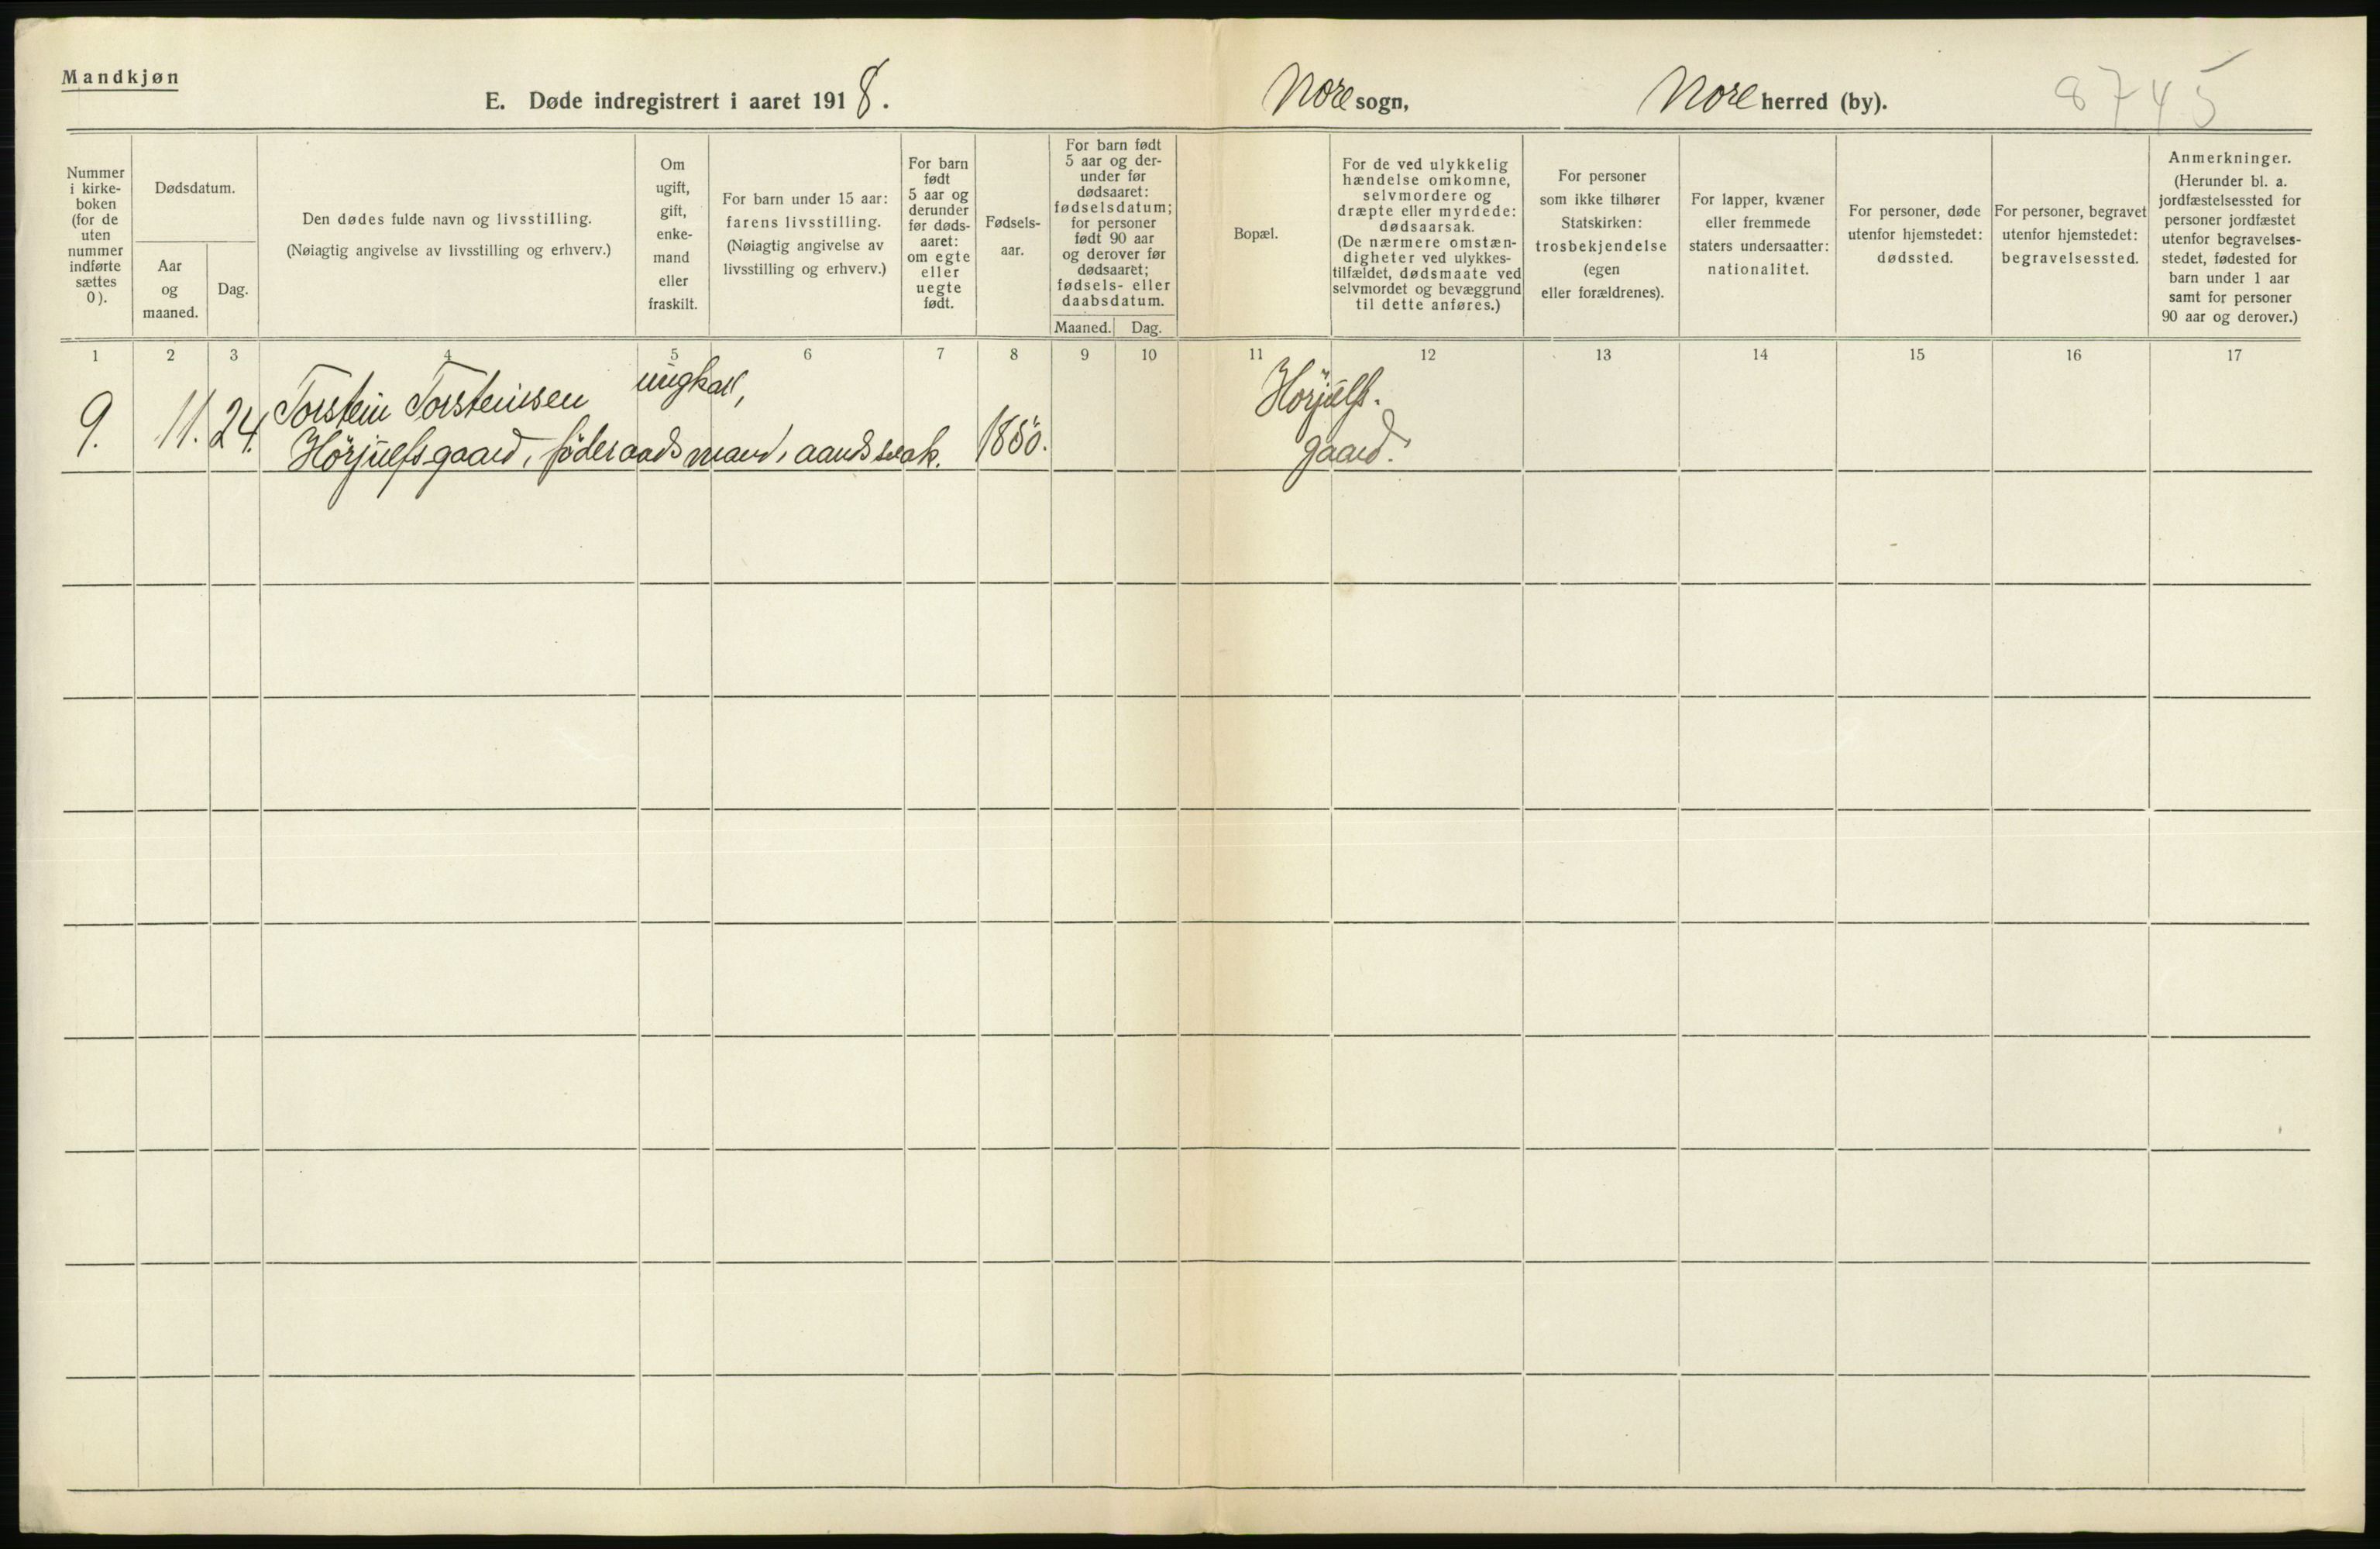 Mandkjøn
E. Døde indregistrert i aaret 1918. Nore sogn, Nore herred (by). 8745
Nummer i kirke-boken (for de uten nummer indførte sættes 0).
Dødsdatum.
Aar og maaned.
Dag.
Den dødes fulde navn og livsstilling.
(Nøiagtig angivelse av livsstilling og erhverv.)
Om ugift, gift, enke-mand eller fraskilt.
For barn under 15 aar: farens livsstilling. (Nøiagtig angivelse av livsstilling og erhverv.)
For barn født 5 aar og derunder før døds-aaret: om egte eller uegte født.
Fødsels-aar.
For barn født 5 aar og der-under før dødsaaret: fødselsdatum; for personer født 90 aar og derover før dødsaaret; fødsels- eller daabsdatum.
Maaned. Dag.
Bopæl.
For de ved ulykkelig hændelse omkomne, selvmordere og dræpte eller myrdede: dødsaarsak. (De nærmere omstæn-digheter ved ulykkes-tilfældet, dødsmaate ved selvmordet og bevæggrund til dette anføres.)
For personer som ikke tilhører Statskirken: trosbekjendelse (egen eller forældrenes).
For lapper, kvæner eller fremmede staters undersaatter: nationalitet.
For personer, døde utenfor hjemstedet: dødssted.
For personer, begravet utenfor hjemstedet: begravelsessted.
Anmerkninger. (Herunder bl. a. jordfæstelsessted for personer jordfæstet utenfor begravelses-stedet, fødested for barn under 1 aar samt for personer 90 aar og derover.)
1 2 3 4 5 6 7 8 9 10 11 12 13 14 15 16 17
9. 11. 24. Torstein Torsteinsen ungkar, Hörjulfs-
Hörjulfsgaard, föderaadsmand, aandssvak. 1850. gaard.